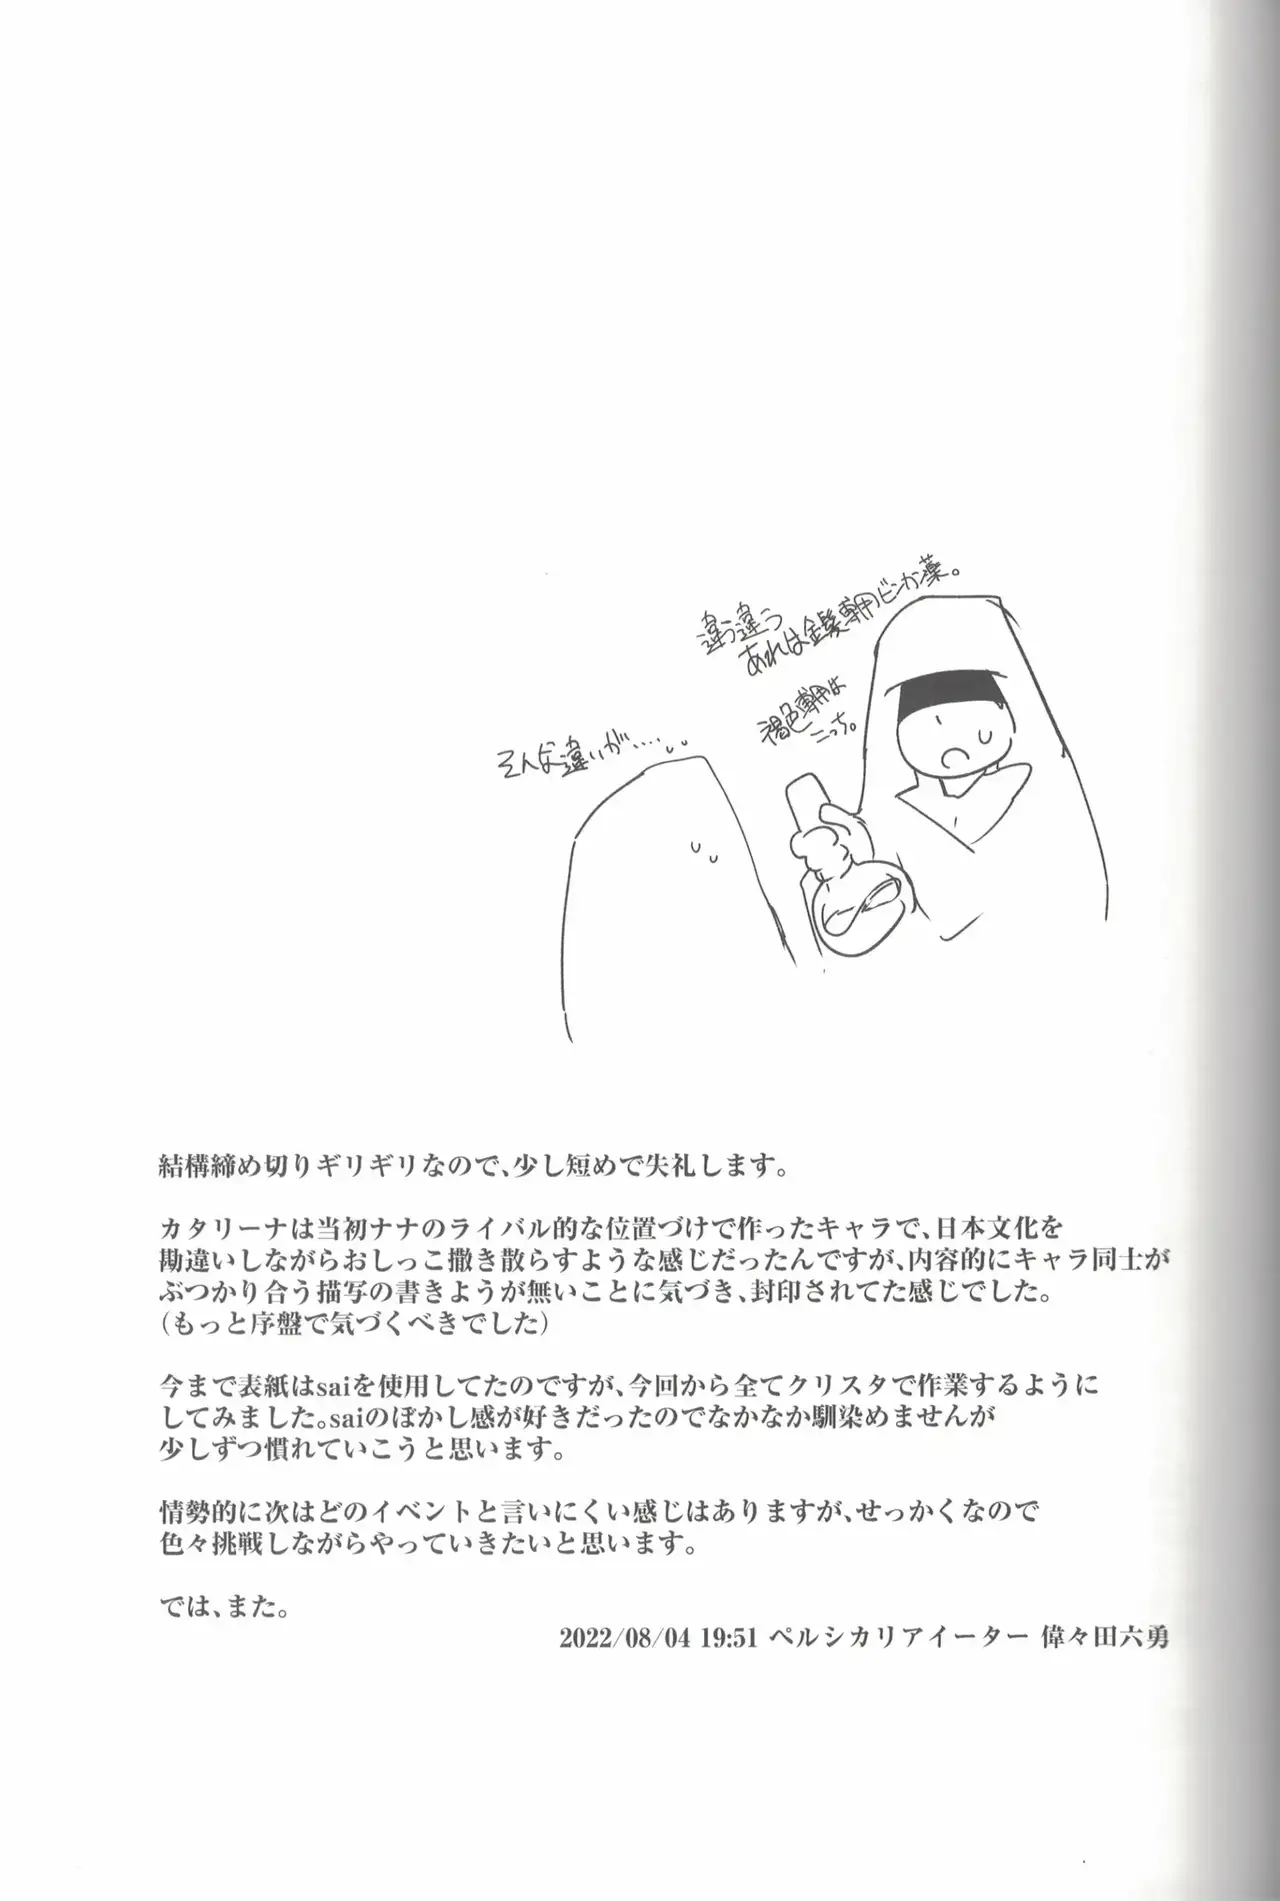 違う違う
あれは金髪専用ビンカン薬。
褐色専用は
こっち。
そんな違いが....
結構締め切りギリギリなので、少し短めで失礼します。
カタリーナは当初ナナのライバル的な位置づけで作ったキャラで、日本文化を
勘違いしながらおしっこ撒き散らすような感じだったんですが、内容的にキャラ同士が
ぶつかり合う描写の書きようが無いことに気づき、封印されてた感じでした。
（もっと序盤で気づくべきでした）
今まで表紙はsaiを使用してたのですが、今回から全てクリスタで作業するように
してみました。saiのぼかし感が好きだったのでなかなか馴染めませんが
少しずつ慣れていこうと思います。
情勢的に次はどのイベントと言いにくい感じはありますが、せっかくなので
色々挑戦しながらやっていきたいと思います。
では、また。
2022/08/04 19:51 ペルシカリアイーター 偉々田六勇